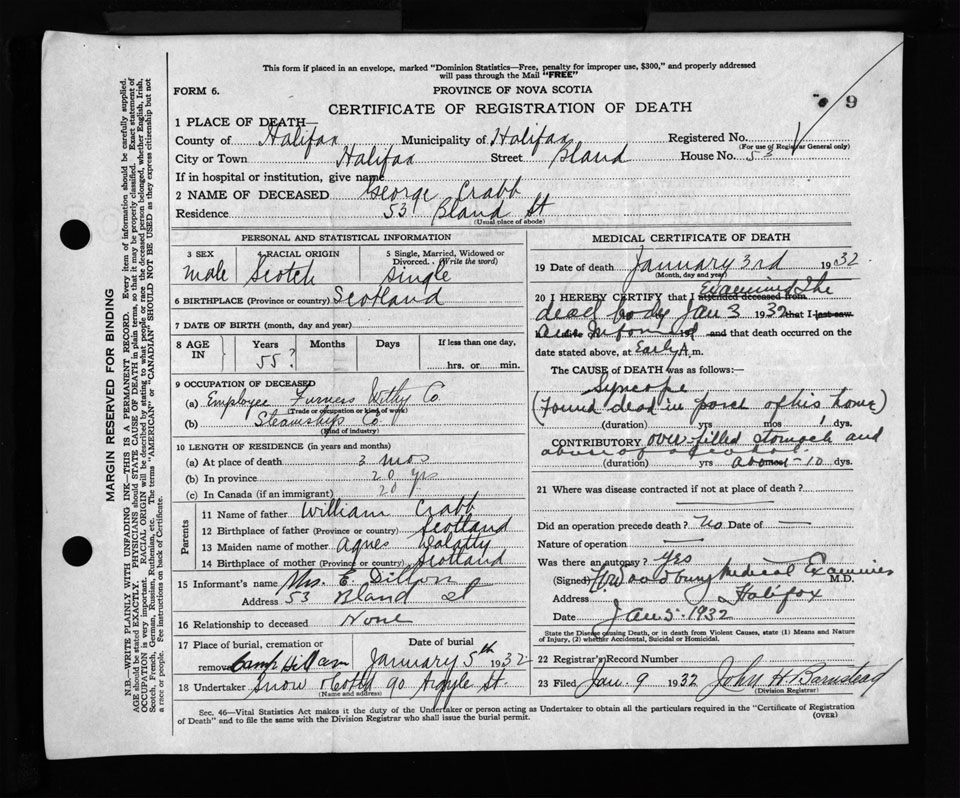 This form if placed in an envelope, marked "Dominion Statistics—Free, penalty for improper use, $300," and properly addressed
will pass through the Mail "FREE"
FORM 6.
PROVINCE OF NOVA SCOTIA
CERTIFICATE OF REGISTRATION OF DEATH
9
1 PLACE OF DEATH—
County of Halifax Municipality of Halifax Registered No.
(For use of Registrar General only)
City or Town Halifax Street Bland House No. 53
If in hospital or institution, give name
2 NAME OF DECEASED George Crabb
Residence 53 Bland St
(Usual place of abode)
PERSONAL AND STATISTICAL INFORMATION
3 SEX 4 RACIAL ORIGIN 5 Single, Married, Widowed or Divorced. (Write the word)
Male Scotch Single
6 BIRTHPLACE (Province or country) Scotland
7 DATE OF BIRTH (month, day and year)
8 AGE IN Years Months Days If less than one day,
55? hrs. or min.
9 OCCUPATION OF DECEASED
(a) Employee Furness Withy Co
(Trade or occupation or kind of work)
(b) Steamship Co
(Kind of industry)
10 LENGTH OF RESIDENCE (in years and months)
(a) At place of death 3 mos
(b) In province 20 yrs
(c) In Canada (if an immigrant) 20
Parents
11 Name of father William Crabb
12 Birthplace of father (Province or country) Scotland
13 Maiden name of mother Agnes
14 Birthplace of mother (Province or country) Scotland
15 Informant's name Mrs. E. Dillon
Address 53 Bland St
16 Relationship to deceased None
17 Place of burial, cremation or removal Camp Hill Date of burial January 5th 1932
18 Undertaker Snow 90 Argyle St.
(Name and address)
MEDICAL CERTIFICATE OF DEATH
19 Date of death January 3rd 1932
(Month, day and year)
20 I HEREBY CERTIFY that I attended deceased from Examined the
dead body Jan 3 1932 that I last saw
and that death occurred on the
date stated above, at Early A.m.
The CAUSE of DEATH was as follows:—
Syncope
(Found dead in porch of his home)
(duration) yrs mos 1 dys.
CONTRIBUTORY over filled stomach and
abuse of alcohol
(duration) yrs 10 dys.
21 Where was disease contracted if not at place of death?
Did an operation precede death? No Date of —
Nature of operation —
Was there an autopsy? yes
(Signed) Woodbury Medical Examiner M.D.
Address Halifax
Date Jan 5 1932
State the Disease causing Death, or in death from Violent Causes, state (1) Means and Nature
of Injury, (2) whether Accidental, Suicidal or Homicidal.
22 Registrar's Record Number
23 Filed Jan. 9 1932 John H. Barnstead
(Division Registrar)
Sec. 46—Vital Statistics Act makes it the duty of the Undertaker or person acting as Undertaker to obtain all the particulars required in the "Certificate of Registration
of Death" and to file the same with the Division Registrar who shall issue the burial permit.
(OVER)
MARGIN RESERVED FOR BINDING
N.B.—WRITE PLAINLY WITH UNFADING INK—THIS IS A PERMANENT RECORD. Every item of information should be carefully supplied.
AGE should be stated EXACTLY. PHYSICIANS should STATE CAUSE OF DEATH in plain terms, so that it may be properly classified. Exact statement of
OCCUPATION is very important. RACIAL ORIGIN will be described by stating to what people or race the deceased person belonged, whether English, Irish,
Scotch, French, German, Russian, Ruthenian, etc. The terms "AMERICAN" or "CANADIAN" SHOULD NOT BE USED as they express citizenship but not
a race or people. See instructions on back of Certificate.